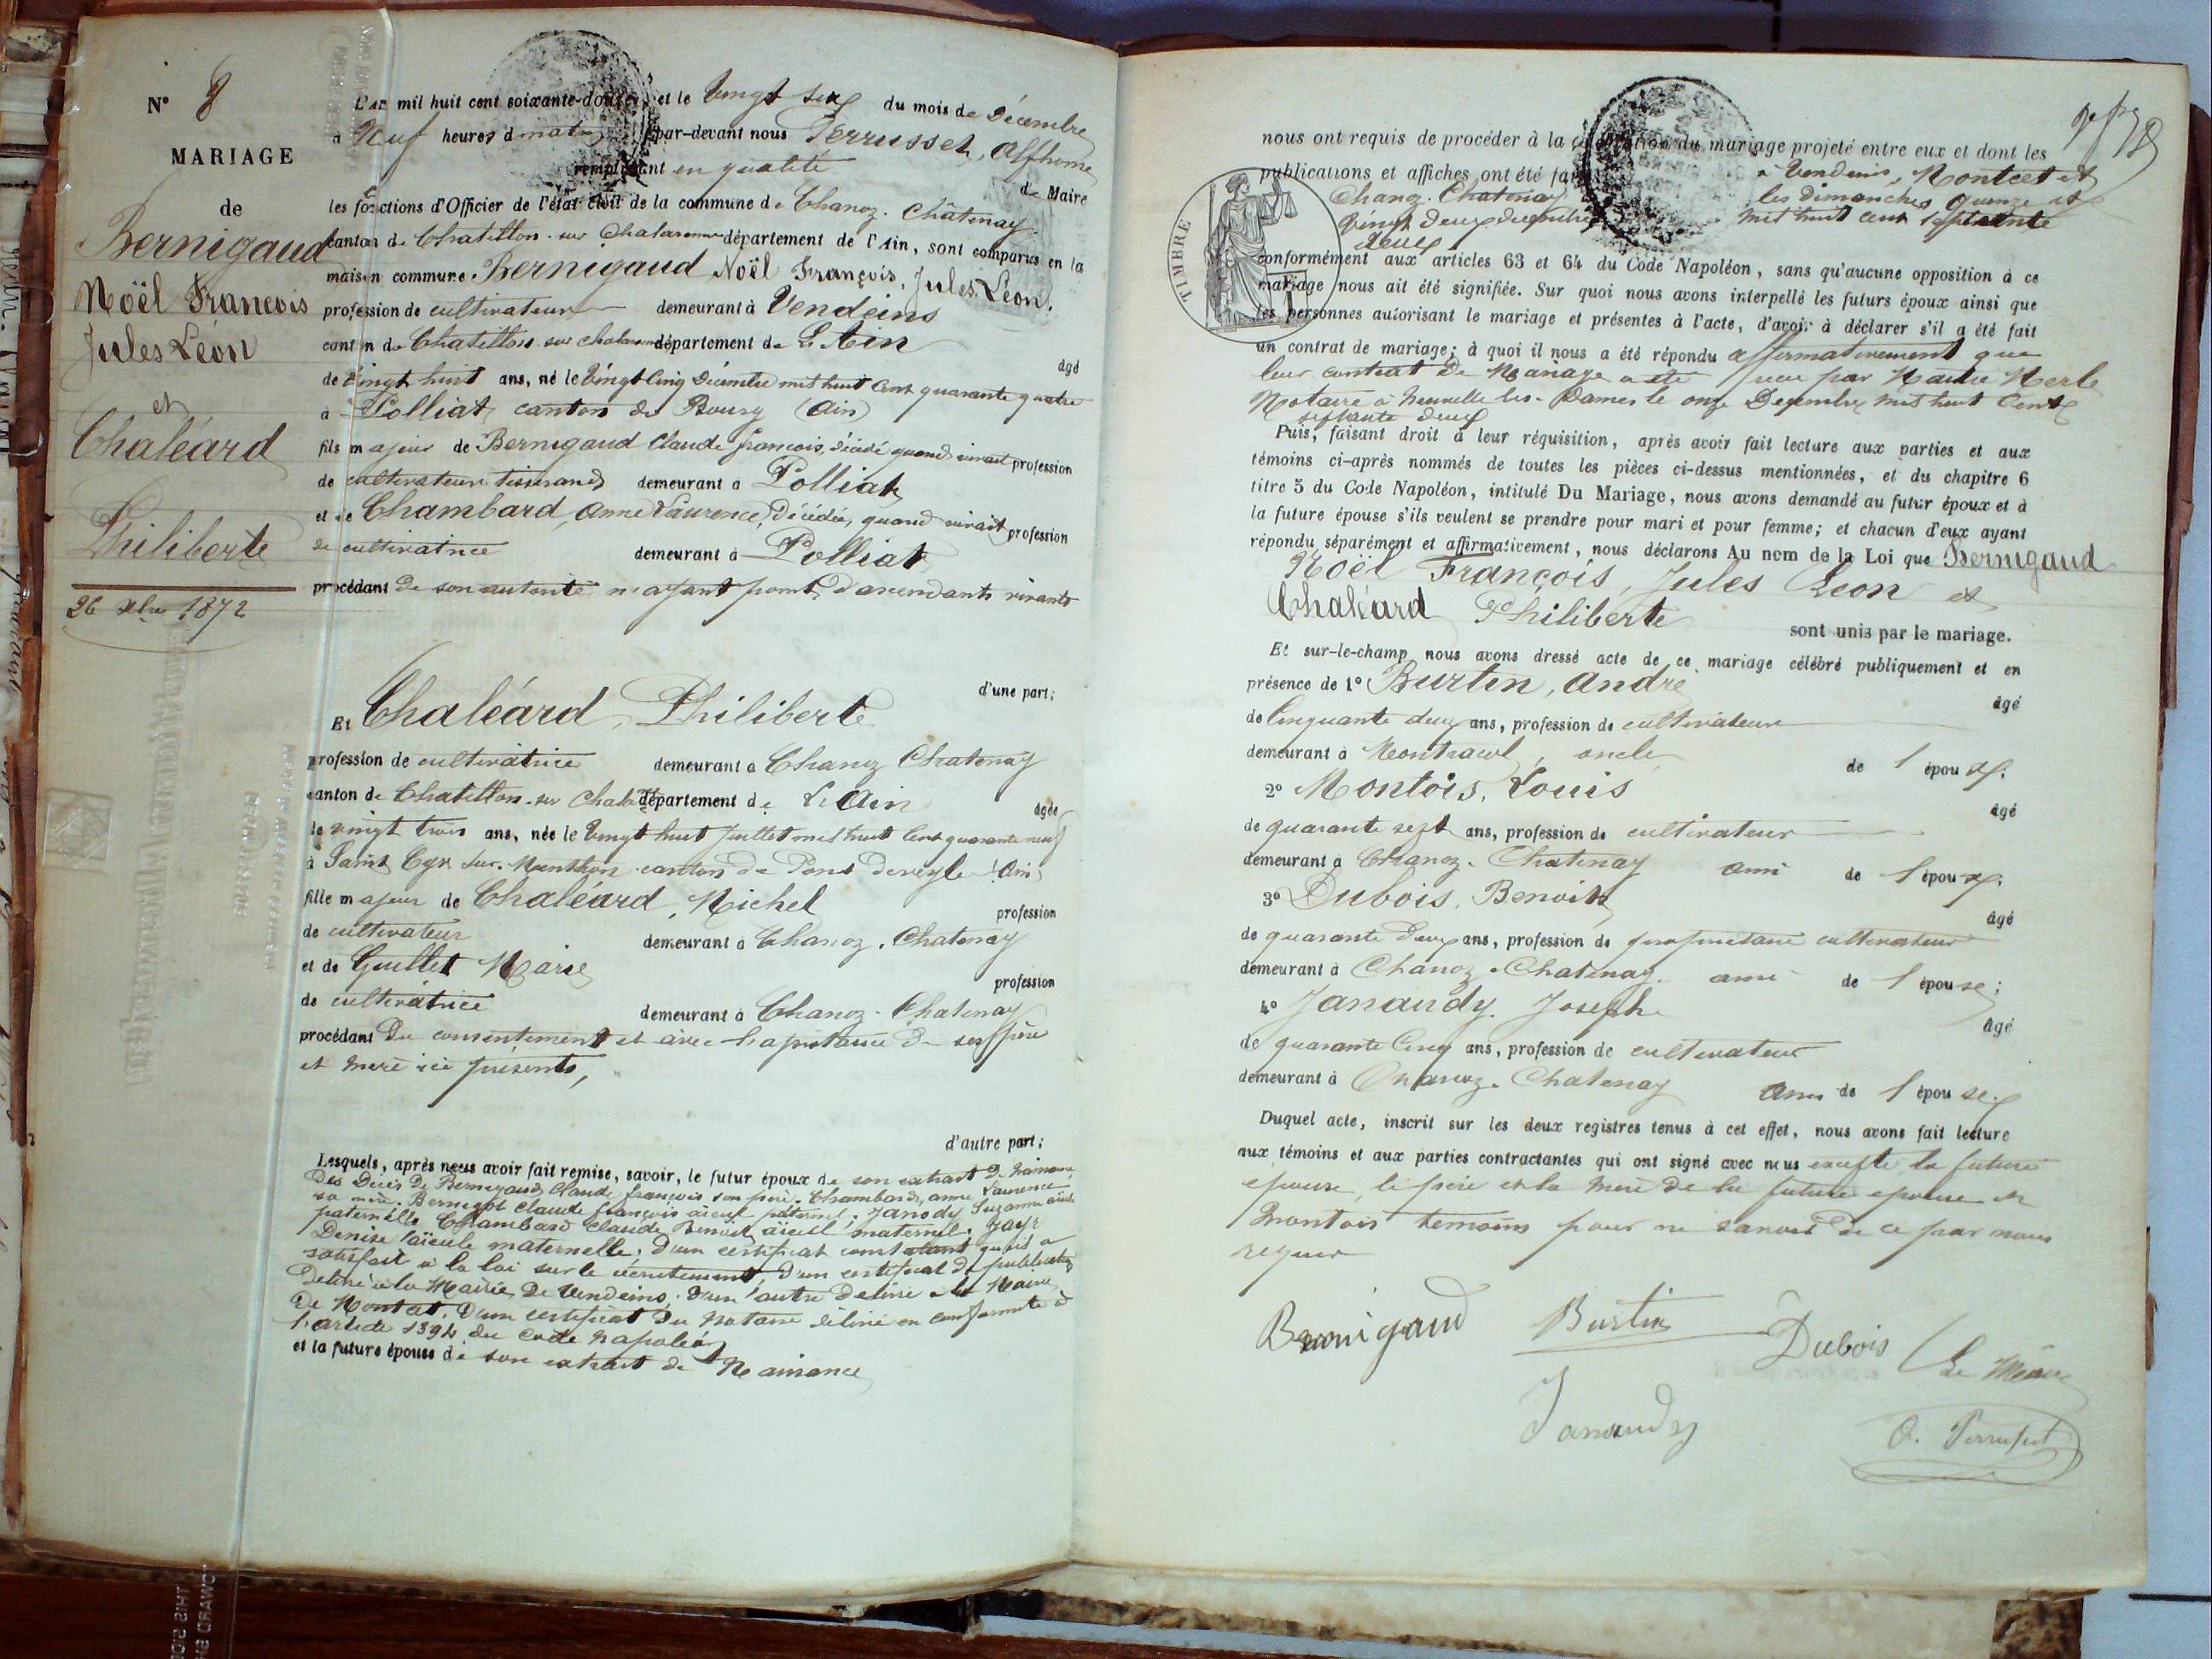 N° 8
MARIAGE
de
Bernigaud
Noël François
Jules Léon
et
Chaléard
Philiberte
26 Xbre 1872
L'an mil huit cent soixante-douze, et le Vingt six du mois de Décembre
à Neuf heures d matin par-devant nous Perrusset, Alphonse
remplissant en qualité de Maire
les fonctions d'Officier de l'état civil de la commune de Chanoz-Châtenay
canton de Chatillon-sur Chalaronne département de l'Ain, sont comparus en la
maison commune Bernigaud Noël François, Jules, Léon,
profession de cultivateur demeurant à Vendeins
canton de Chatillon sur chalaronne département de L'Ain
âgé
de Vingt huit ans, né le Vingt Cinq Décembre mil huit Cent quarante quatre
à Polliat, canton de Bourg (Ain)
fils majeur de Bernigaud Claude françois, décédé quand vivait profession
de cultivateur tisserand demeurant à Polliat
et de Chambard, Anne Laurence, Décédée, quand vivait profession
de cultivatrice demeurant à Polliat
procédant de son autorité n'ayant point d'ascendants vivants
d'une part;
Et Chaléard, Philiberte
profession de cultivatrice demeurant à Chanoz Chatenay
canton de Chatillon-sur Chala département de L'Ain
âgée
de vingt trois ans, née le Vingt huit Juillet mil huit Cent quarante neuf
à Saint Cyr sur-Menthon canton de Pont deveyle (Ain)
fille majeur de Chaléard, Michel
profession
de cultivateur demeurant à Chanoz-Chatenay
et de Guillet Marie
profession
de cultivatrice demeurant à Chanoz-Chatenay
procédant du consentement et avec l'assistance de ses père
et mère ici présents,
d'autre part;
Lesquels, après nous avoir fait remise, savoir, le futur époux de son extrait de naissance
Des Décès de Bernigaud Claude françois son père, Chambard, anne Laurence
sa mère. Bernigot Claude françois aïeul paternel, Janody Suzanne aïeule
paternelle Chambard Claude Benoit aïeul maternel, Jayr
Denise l'aïeule maternelle, d'un certificat constatant qu'il a
satisfait à la loi sur le recrutement, d'un certificat de publication
délivré à la Mairie de Vendeins, d'un autre délivré à la Mairie
De Montcet. D'un certificat du Notaire délivré en conformité à
l'article 1394 du code Napoléon
et la future épouse de son extrait de Naissance
nous ont requis de procéder à la célébration du mariage projeté entre eux et dont les
publications et affiches ont été faites à Vendeins, Montcet et
Chanoz-Chatenay les Dimanches quinze et
vingt deux décembre mil huit cent septante
deux
TIMBRE
conformément aux articles 63 et 64 du Code Napoléon, sans qu'aucune opposition à ce
mariage nous ait été signifiée. Sur quoi nous avons interpellé les futurs époux ainsi que
les personnes autorisant le mariage et présentes à l'acte, d'avoir à déclarer s'il a été fait
un contrat de mariage; à quoi il nous a été répondu affirmativement que
leur contrat de Mariage a été reçu par Maître Merle
Notaire à Neuville les-Dames le onze Décembre mil huit Cent
septante deux
Puis, faisant droit à leur réquisition, après avoir fait lecture aux parties et aux
témoins ci-après nommés de toutes les pièces ci-dessus mentionnées, et du chapitre 6
titre 5 du Code Napoléon, intitulé Du Mariage, nous avons demandé au futur époux et à
la future épouse s'ils veulent se prendre pour mari et pour femme; et chacun d'eux ayant
répondu séparément et affirmativement, nous déclarons Au nom de la Loi que Bernigaud
Noël François, Jules Léon et
Chaléard Philiberte
sont unis par le mariage.
Et sur-le-champ nous avons dressé acte de ce mariage célébré publiquement et en
présence de 1° Burtin, André
âgé
de Cinquante deux ans, profession de cultivateur
demeurant à Montracol, oncle de l époux;
2° Montois, Louis
âgé
de quarante sept ans, profession de cultivateur
demeurant à Chanoz-Chatenay ami de l époux;
3° Dubois, Benoit
âgé
de quarante Deux ans, profession de propriétaire cultivateur
demeurant à Chanoz-Chatenay ami de l épouse;
4° Janaudy Joseph
âgé
de quarante Cinq ans, profession de cultivateur
demeurant à Chanoz-Chatenay ami de l épouse;
Duquel acte, inscrit sur les deux registres tenus à cet effet, nous avons fait lecture
aux témoins et aux parties contractantes qui ont signé avec nous excepté la future
épouse, le père et la mère de la future épouse et
Montois témoins pour ne savoir de ce par nous
requis
Bernigaud Burtin Dubois Le Maire
Janaudy A. Perrusset